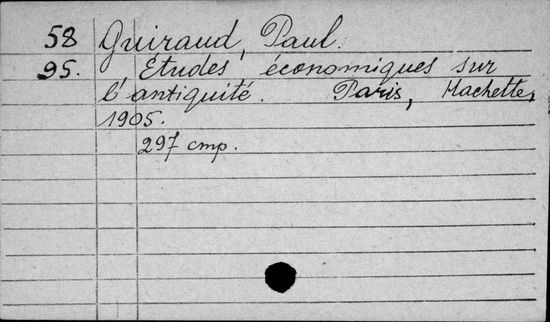 58 Guiraud, Paul.
95. Études économiques sur
l'antiquité. Paris, Hachette,
1905.
297 cmp.